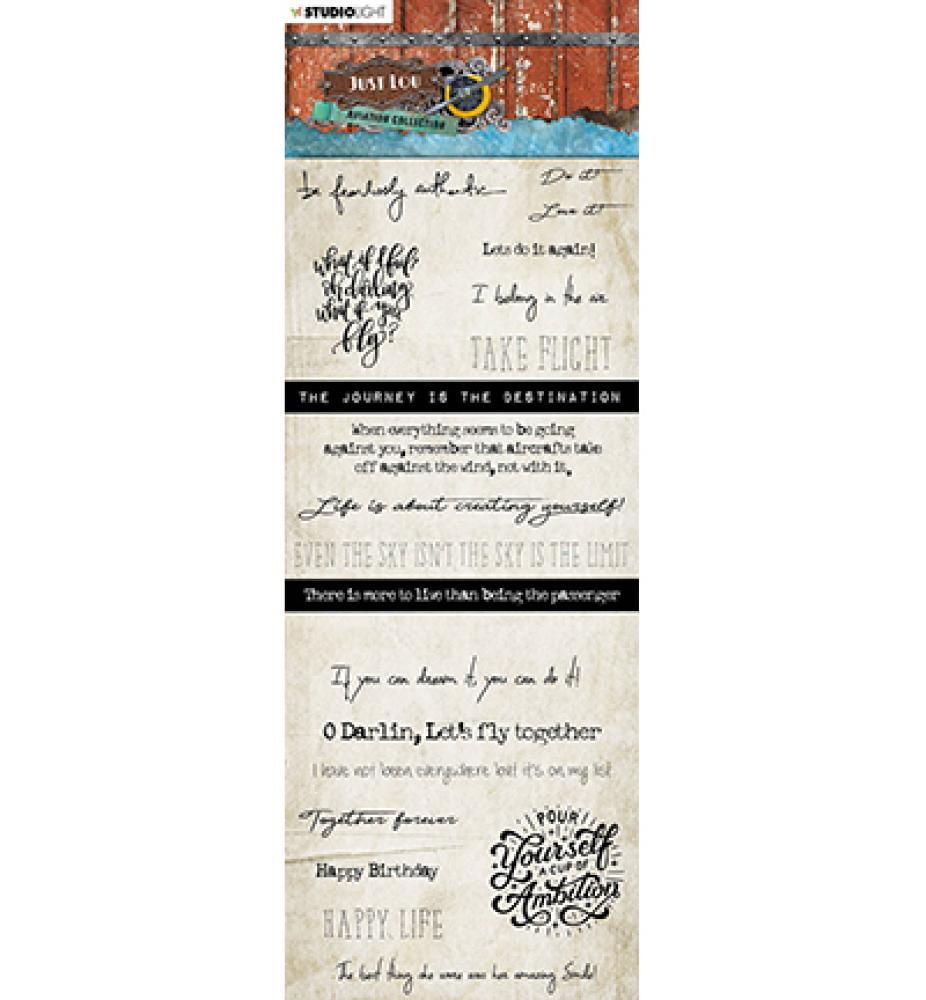 STUDIOLIGHT
JUST LOU
AVIATION COLLECTION
be fearlessly authentic
Do it!
Love it!
what if I fall?
oh darling
what if you
fly?
Lets do it again!
I belong in the air
TAKE FLIGHT
THE JOURNEY IS THE DESTINATION
When everything seems to be going
against you, remember that aircrafts take
off against the wind, not with it,
Life is about creating yourself!
EVEN THE SKY ISN'T THE SKY IS THE LIMIT
There is more to live than being the passenger
If you can dream it you can do it!
O Darlin, Let's fly together
I have not been everywhere but it's on my list
Together forever
Happy Birthday
HAPPY LIFE
POUR
Yourself
A CUP OF
Ambition
The best thing she wore was her amazing Smile!